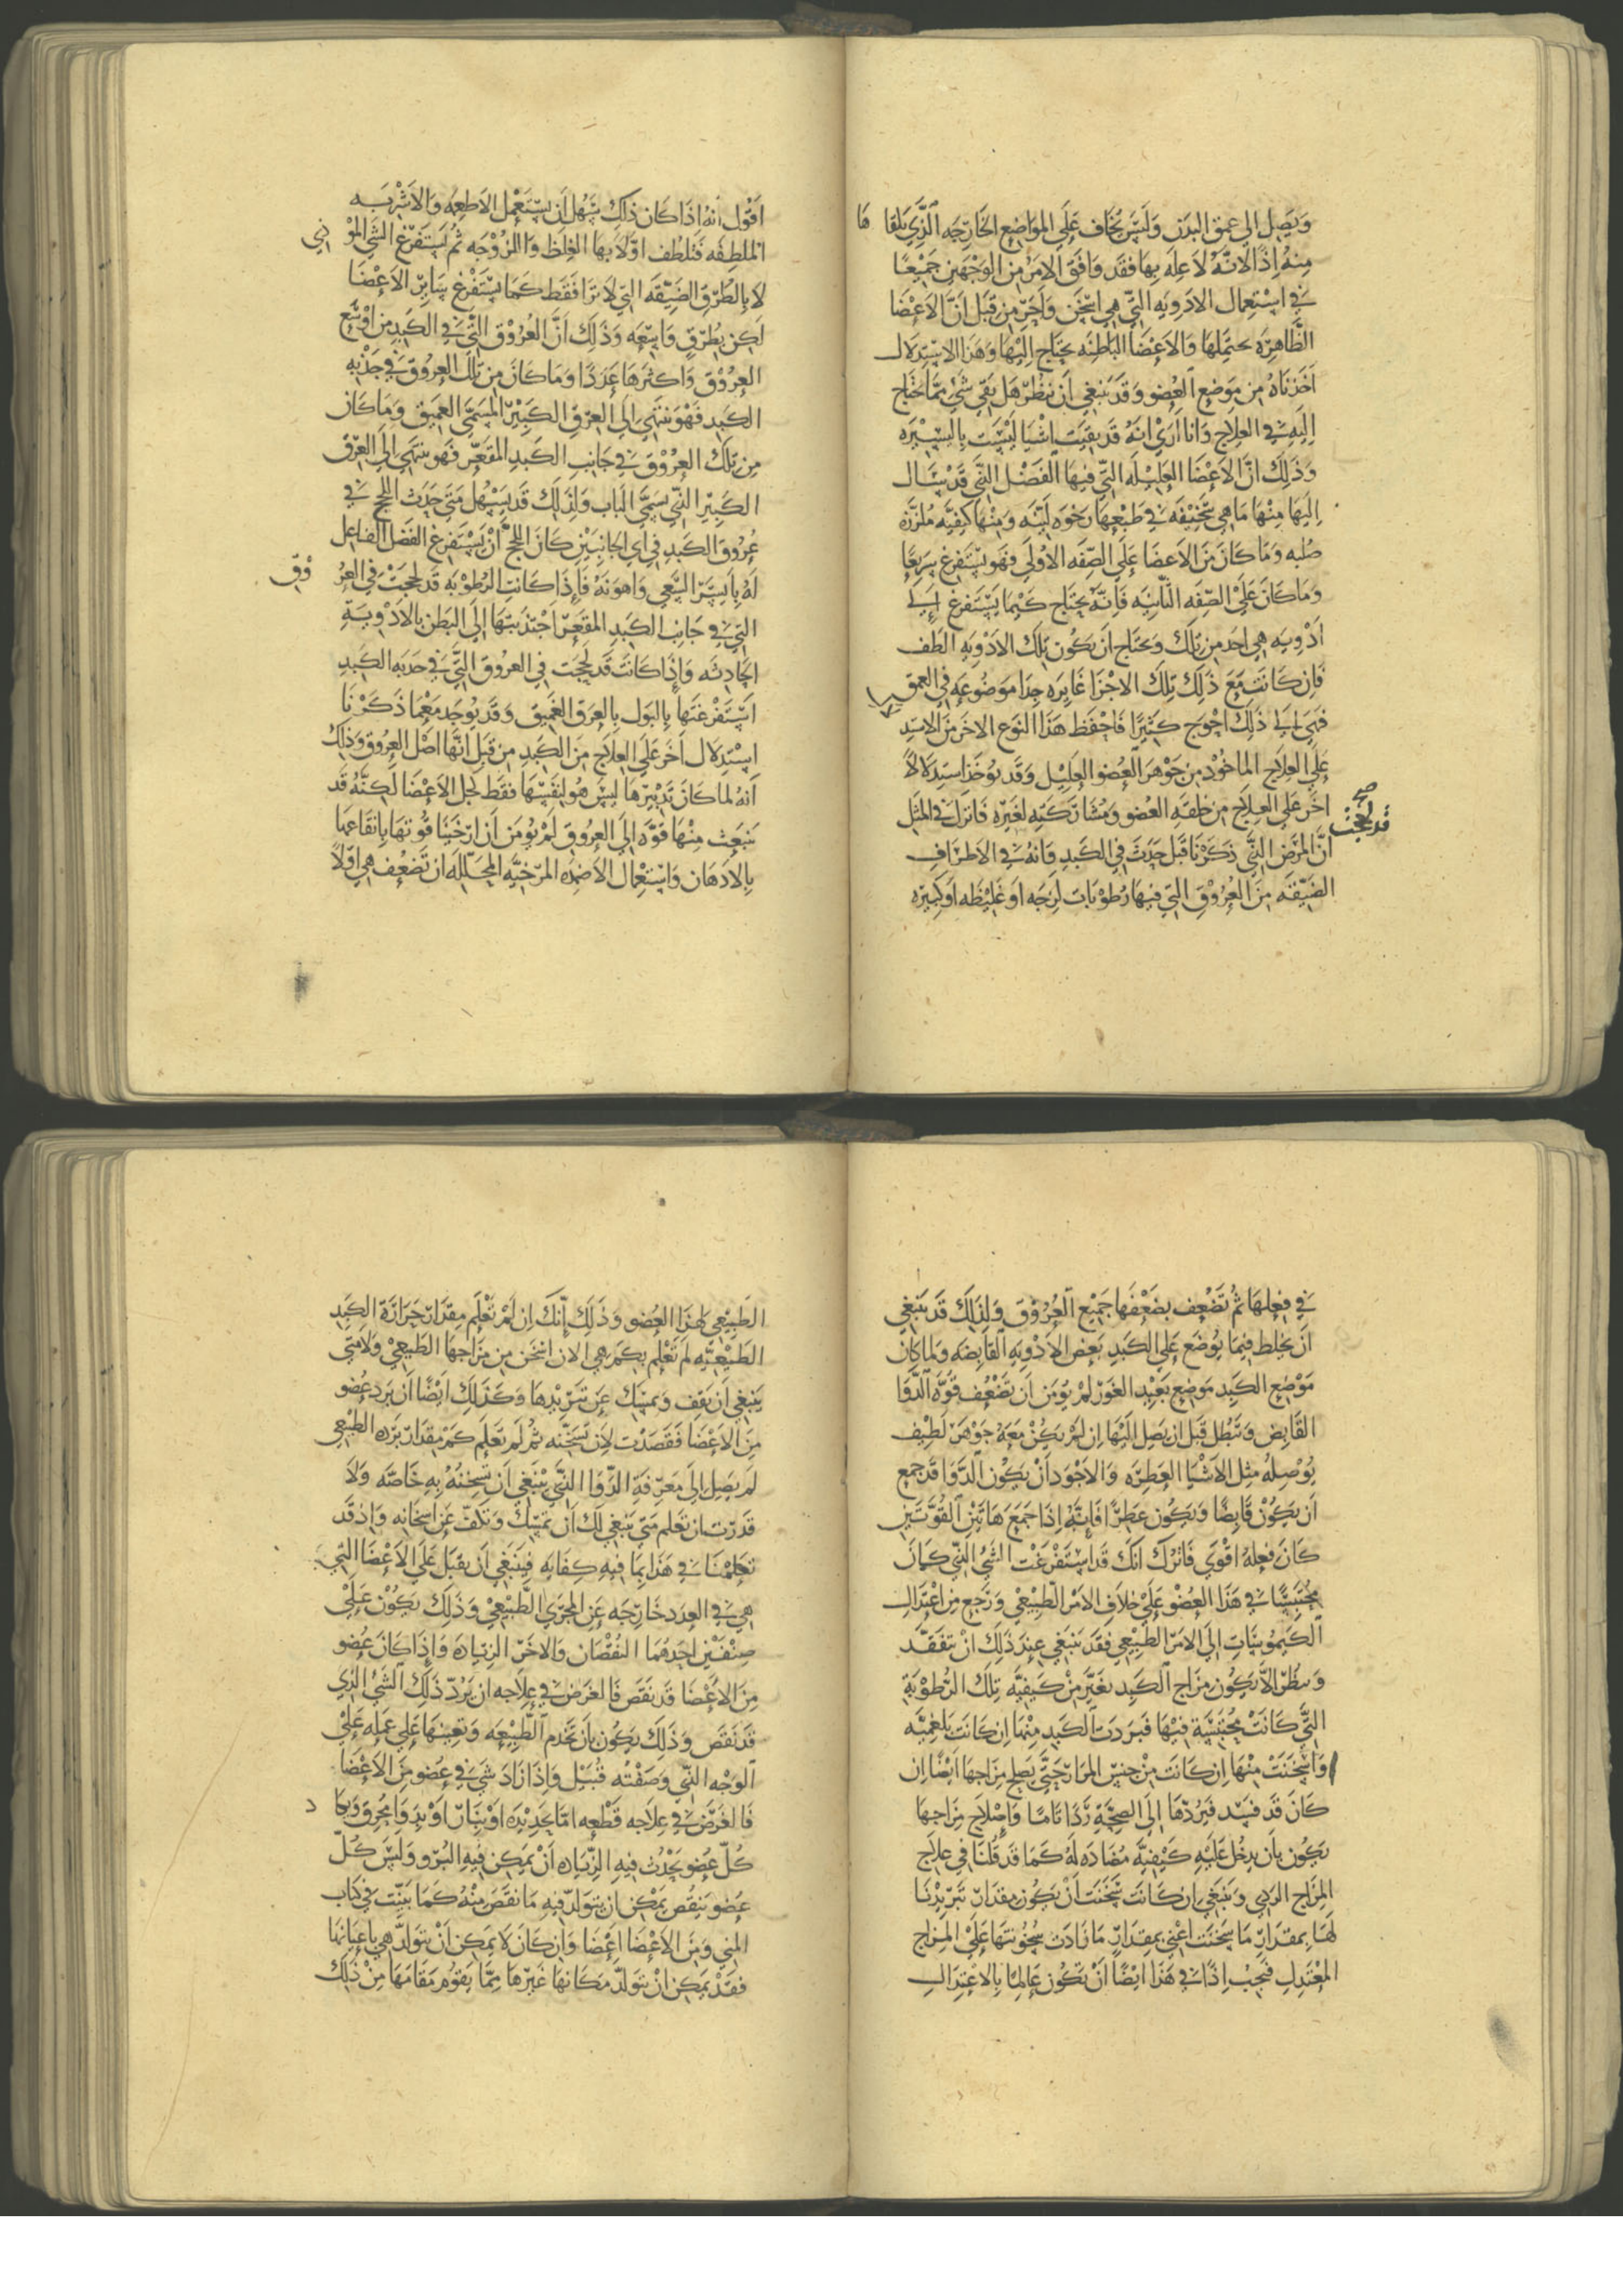 ويصل الى عمق البدن وليس يخاف على المواضع الخارجه الذي يلقاها
منه اذًا لانه لا عله بها فقد وافق الامر من الوجهين جميعًا
في استعمال الادويه التي هي اسخن واحر من قبل ان الاعضا
الظاهره تحتملها والاعضا الباطنه يحتاج اليها وهذا الاستدلال
اخذناه من موضع العضو وقد ينبغي ان ننظر هل بقي شي مما يحتاج
اليه في العلاج وانا اري انه قد بقيت اشيا ليست باليسيره
وذلك ان الاعضا العليله التي فيها الفضل التي قد سال
اليها منها ما هي سخيفه في طبعها رخوه لينه ومنها كثيفه ملززه
صلبه وما كان من الاعضا على الصفه الاولي فهو يستفرغ سريعًا
وما كان علي الصفه الثانيه فانه يحتاج كيما يستفرغ الي
ادويه هي احد من تلك ويحتاج ان يكون تلك الادويه الطف
فان كانت مع ذلك تلك الاجزا غايره جدا موضوعه في العمق
فهي الي ذلك احوج كثيرًا فاحفظ هذا النوع الاخر من الاستد
على العلاج الماخوذ من جوهر العضو العليل وقد يوخذ استدلالًا
اخر على العلاج من خلقه العضو ومشاركته لغيره فانزل في المثل
صح
قد لحجت
ان المرض التي ذكرنا قبل حدث في الكبد وانه في الاطراف
الضيقه من العروق التي فيها رطوبات لزجه او غليظه او كثيره
اقول انه اذا كان ذلك سهل ان يستعمل الاطعمه والاشربه
الملطفه فتلطف اولا بها الغلظ واللزوجه ثم يستفرغ الشي الموذي
لا بالطرق الضيقه التي لا ترا فقط كما يستفرغ ساير الاعضا
لكن بطرق واسعه وذلك ان العروق التي في الكبد من اوسع
العروق واكثرها عددا وما كان من تلك العروق في حدبه
الكبد فهو ينتهي الي العرق الكبير المسمى العميق وما كان
من تلك العروق في جانب الكبد المقعر فهو ينتهي الي العرق
الكبير التي يسمى الباب ولذلك قد يسهل متى حدث اللحج في
عروق الكبد في اي الجانبين كان اللحج ان يستفرغ الفضل الفاعل
له بايسر السعي واهونه فاذا كانت الرطوبه قد لحجت في العروق
التي في جانب الكبد المقعر اجتذبتها الى البطن بالادويه
الحادثه واذا كانت قد لحجت في العروق التي في حدبه الكبد
استفرغتها بالبول بالعرق العميق وقد يوجد مع ما ذكرنا
استدلال اخر على العلاج من الكبد من قبل انها اصل العروق وذلك
انه لما كان تدبيرها ليس هو لنفسها فقط كجل الاعضا لكنه قد
ينبعث منها قوه الى العروق لم يومن ان ارخينا قوتها بانقاعها
بالادهان واستعمال الاضمده المرخيه المحلله ان تضعف هي اولًا
في فعلها ثم تضعف بضعفها جميع العروق ولذلك قد ينبغي
ان يخلط فيما يوضع على الكبد بعض الادويه القابضه ولما كان
موضع الكبد موضع بعيد الغور لم يومن ان تضعف قوه الدوا
القابض وتبطل قبل ان يصل اليها ان لم يكن معه جوهر لطيف
يوصله مثل الاشيا العطره والاجود ان يكون الدوا قد جمع
ان يكون قابضًا ويكون عطرًا فانه اذا جمع هاتين القوتين
كان فعله اقوي فانزل انك قد استفرغت الشي التي كان
محتبسًا في هذا العضو على خلاف الامر الطبيعي ورجع من اعتدال
الكيموسات الى الامر الطبيعي فقد ينبغي عند ذلك ان تتفقد
وتنظر الا يكون مزاج الكبد تغير من كيفيه تلك الرطوبه
التي كانت محتبسة فيها فبردت الكبد منها ان كانت بلغميه
واسخنت منها ان كانت من جنس المرار حتى يصلح مزاجها ايضًا ان
كان قد فسد فيردها الى الصحة ردًا تامًا واصلاح مزاجها
يكون بان يدخل عليه كيفيه مضاده له كما قد قلنا في علاج
المزاج الردي وينبغي ان كانت سخنت ان يكون مقدار تبريدنا
لها بمقدار ما سخنت اعني بمقدار ما زادت سخونتها على المزاج
المعتدل فيجب اذًا في هذا ايضًا ان تكون عالمًا بالاعتدال
الطبيعي لهذا العضو وذلك انك ان لم تعلم مقدار حرارة الكبد
الطبيعيه لم تعلم بكم هي الان اسخن من مزاجها الطبيعي ولا متى
ينبغي ان تقف وتمسك عن تبريدها وكذلك ايضًا ان برد عضو
من الاعضا فقصدت لان تسخنه ثم لم تعلم كم مقدار برده الطبيعي
لم يصل الى معرفة الدوا التي ينبغي ان تسخنه به خاصه ولا
قدرت ان تعلم متى ينبغي لك ان تمسك وتكف عن اسخانه واذ قد
تكلمنا في هذا بما فيه كفايه فينبغي ان نقبل على الاعضا التي
هي في العدد خارجه عن المجري الطبيعي وذلك يكون على
صنفين احدهما النقصان والاخر الزياده واذا كان عضو
من الاعضا قد نقص فالغرض في علاجه ان يرد ذلك الشي الذي
قد نقص وذلك يكون بان تخدم الطبيعه وتعينها على عمله على
الوجه التي وصفته قبيل واذا زاد شي في عضو من الاعضا
فالغرض في علاجه قطعه اما بحديده او بنار او بدوا محرق وليس
كل عضو يحدث فيه الزياده ان يمكن فيه البرو وليس كل
عضو ينقص يمكن ان يتولد فيه ما نقص منه كما بينت في كتاب
المني ومن الاعضا اعضا وان كان لا يمكن ان تتولد هي باعيانها
فقد يمكن ان يتولد مكانها غيرها مما يقوم مقامها من ذلك